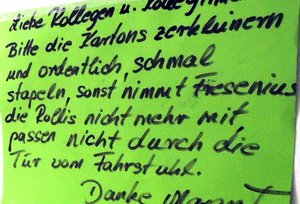 Liebe Kollegen u. Kolleginnen
Bitte die Kartons zerkleinern
und ordentlich, schmal
stapeln, sonst nimmt Fresenius
die Rollis nicht mehr mit
passen nicht durch die
Tür vom Fahrstuhl.
Danke